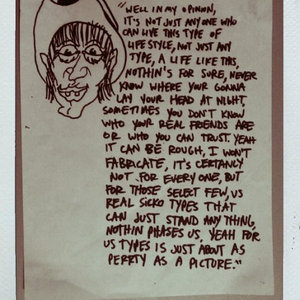 "WELL IN MY OPINION,
IT'S NOT JUST ANY ONE WHO
CAN LIVE THIS TYPE OF
LIFESTYLE, NOT JUST ANY
TYPE, A LIFE LIKE THIS,
NOTHIN'S FOR SURE, NEVER
KNOW WHERE YOUR GONNA
LAY YOUR HEAD AT NIGHT.
SOMETIMES YOU DON'T KNOW
WHO YOUR REAL FRIENDS ARE
OR WHO YOU CAN TRUST. YEAH
IT CAN BE ROUGH, I WON'T
FABRICATE, IT'S CERTANLY
NOT FOR EVERY ONE, BUT
FOR THOSE SELECT FEW, US
REAL SICKO TYPES THAT
CAN JUST STAND ANY THING,
NOTHIN PHASES US. YEAH FOR
US TYPES IS JUST ABOUT AS
PERRTY AS A PICTURE."